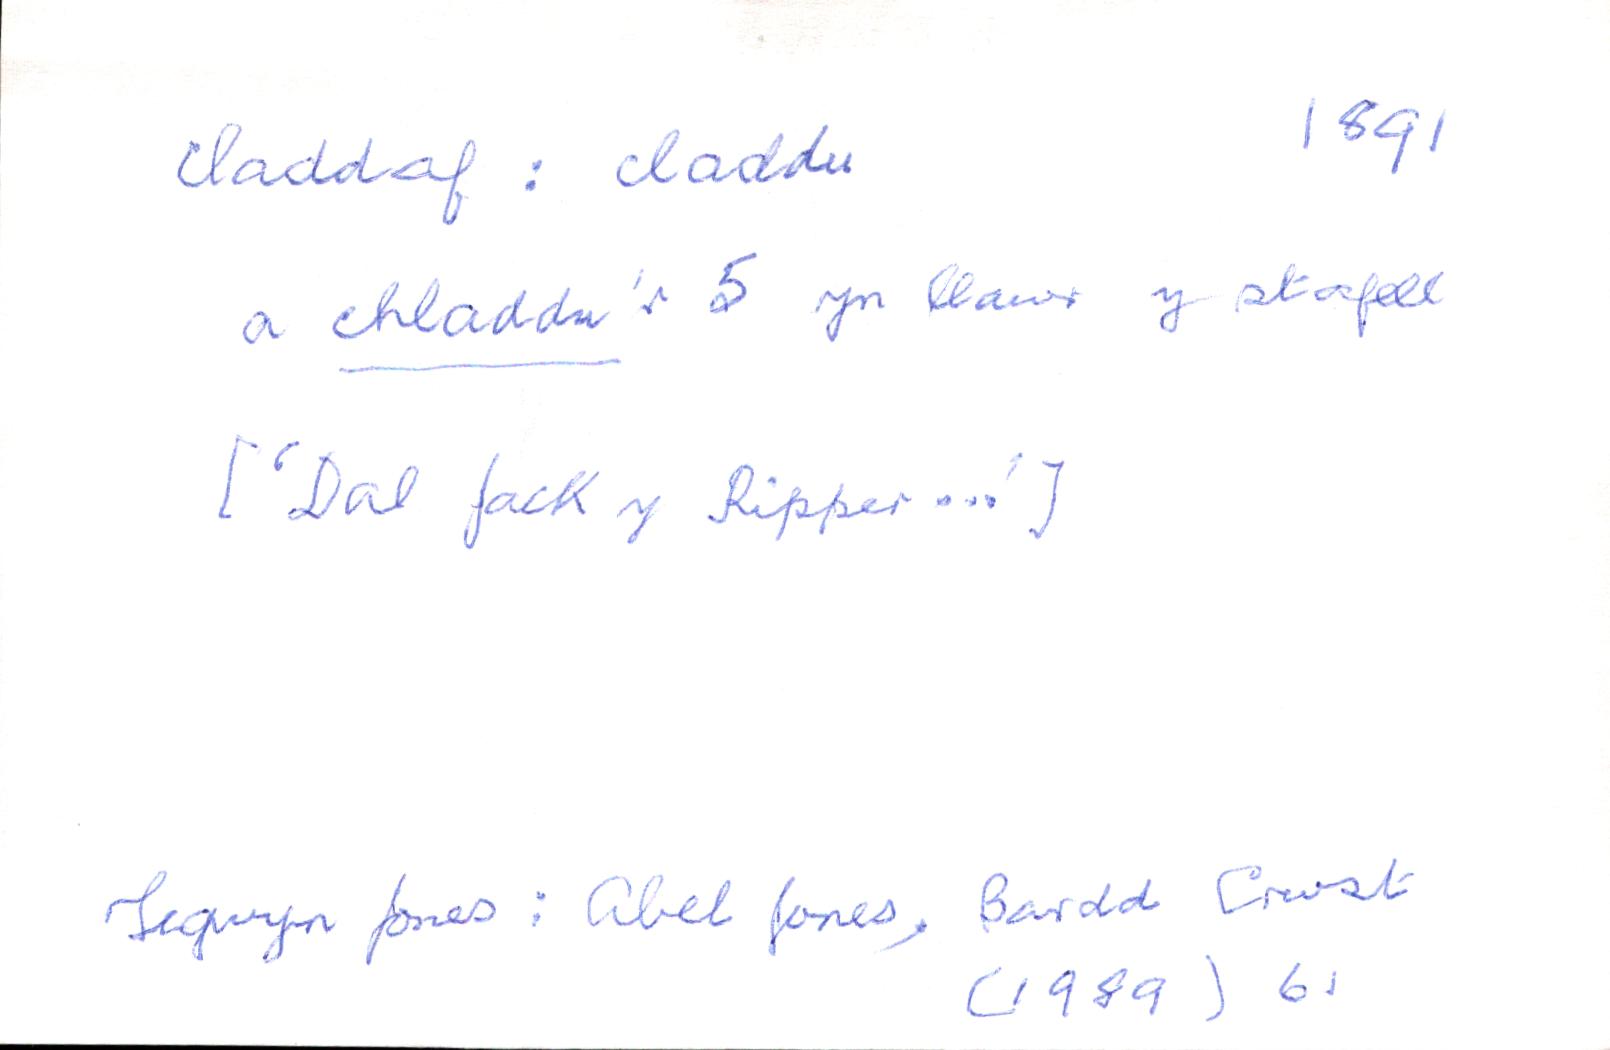 claddaf : claddu 1891
a chladdu'r 5 yn llawr y stafell
['Dal Jack y Ripper ...']
Tegwyn Jones : Abel Jones, Bardd Crwst
(1989) 61